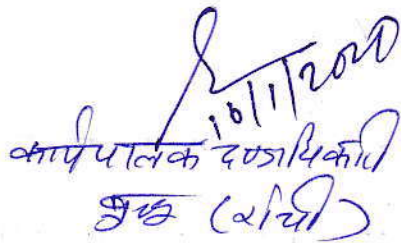 10/1/2020
कार्यपालक दण्डाधिकारी
बुण्डू (राँची)